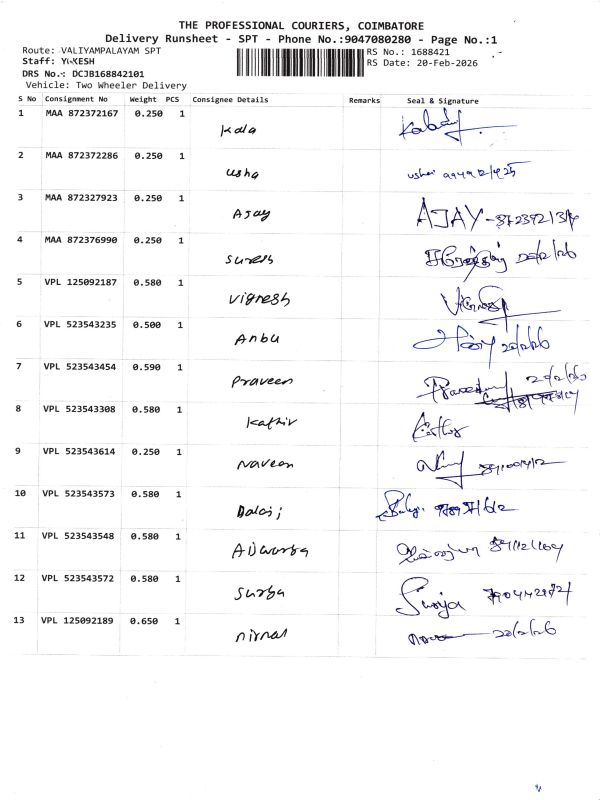 THE PROFESSIONAL COURIERS, COIMBATORE
Delivery Runsheet - SPT - Phone No.:9047080280 - Page No.:1
Route: VALIYAMPALAYAM SPT RS No.: 1688421
Staff: YOKESH RS Date: 20-Feb-2026
DRS No.: DCJB168842101
Vehicle: Two Wheeler Delivery
S No Consignment No Weight PCS Consignee Details Remarks Seal & Signature
1 MAA 872372167 0.250 1 Kala
2 MAA 872372286 0.250 1 usha usha
3 MAA 872327923 0.250 1 Ajay AJAY
4 MAA 872376990 0.250 1 suresh 20/2/26
5 VPL 125092187 0.580 1 vignesh
6 VPL 523543235 0.500 1 Anbu 20/2/26
7 VPL 523543454 0.590 1 Praveen
8 VPL 523543308 0.580 1 Kathir
9 VPL 523543614 0.250 1 Naveen
10 VPL 523543573 0.580 1 Balaji
11 VPL 523543548 0.580 1
12 VPL 523543572 0.580 1 Surya Surya
13 VPL 125092189 0.650 1 nirmal 20/2/26